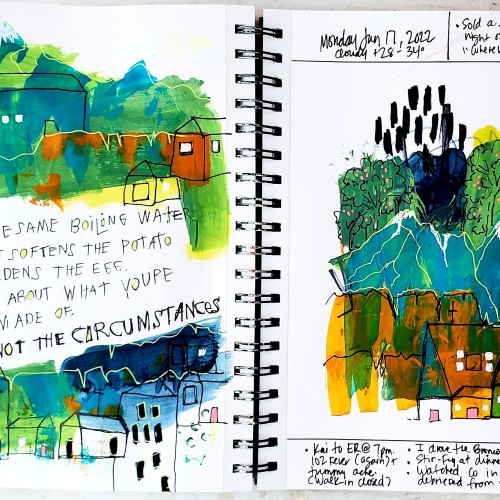 E SAME BOILING WATER
T SOFTENS THE POTATO
DENS THE EGG.
ABOUT WHAT YOU'RE
MADE OF.
NOT THE CIRCUMSTANCES
Monday Jan 17, 2022
cloudy +28-34°
• Sold a
night
"where
• Kai to ER @ 7pm.
102 Fever (again) +
tummy ache
(Walk-in closed)
• I drove the Bronco
• Stir-fry at dinner
• Watched Co in
debriefed from